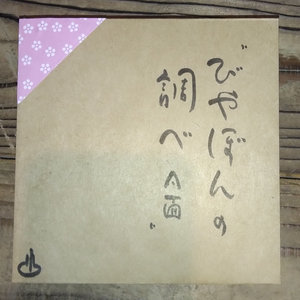 "びやぼんの
調べA面"